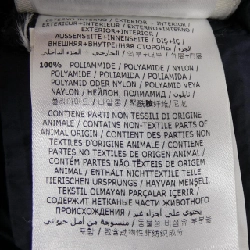 EXTERIOR + INTERIOR / EXTERIOR
EXTERIOR + INTERIOR /
AUSSENSEITE + INNENSEITE / DIŞ + İÇ /
ВНЕШНЯЯ + ВНУТРЕННЯЯ СТОРОНЫ /
100% POLIAMMIDE / POLYAMIDE / NYLON /
POLYAMIDE / POLIAMIDA / POLIAMIDA /
POLYAMID ODER NYLON / POLYAMID VEYA
NAYLON / НЕЙЛОН ПОЛИАМИД /
CONTIENE PARTI NON TESSILI DI ORIGINE
ANIMALE / CONTAINS NON-TEXTILE PARTS OF
ANIMAL ORIGIN / CONTIENT DES PARTIES NON
TEXTILES D'ORIGINE ANIMALE / CONTIENE
PARTES NO TEXTILES DE ORIGEN ANIMAL /
CONTÉM PARTES NÃO TÊXTEIS DE ORIGEM
ANIMAL / ENTHÄLT NICHTTEXTILE TEILE
TIERISCHEN URSPRUNGS / HAYVAN MENŞELİ
TEKSTİL OLMAYAN PARÇALAR İÇERİR /
СОДЕРЖИТ НЕТКАНЫЕ ЧАСТИ ЖИВОТНОГО
ПРОИСХОЖДЕНИЯ /